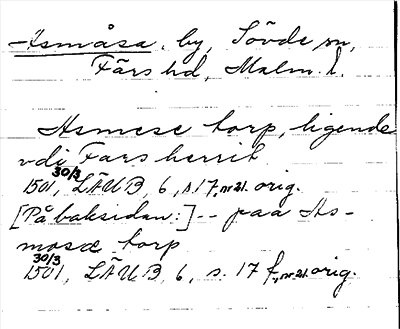 Asmåsa, by, Sövde sn,
Färs hd, Malm. l.
Asmese torp, ligende
vdi Fars herrit
1501 30/3, LÄUB 6, s. 17, nr 21. orig.
[På baksidan:] -- paa As-
mosæ torp
1501 30/3, LÄUB, 6, s. 17 f., nr 21. orig.